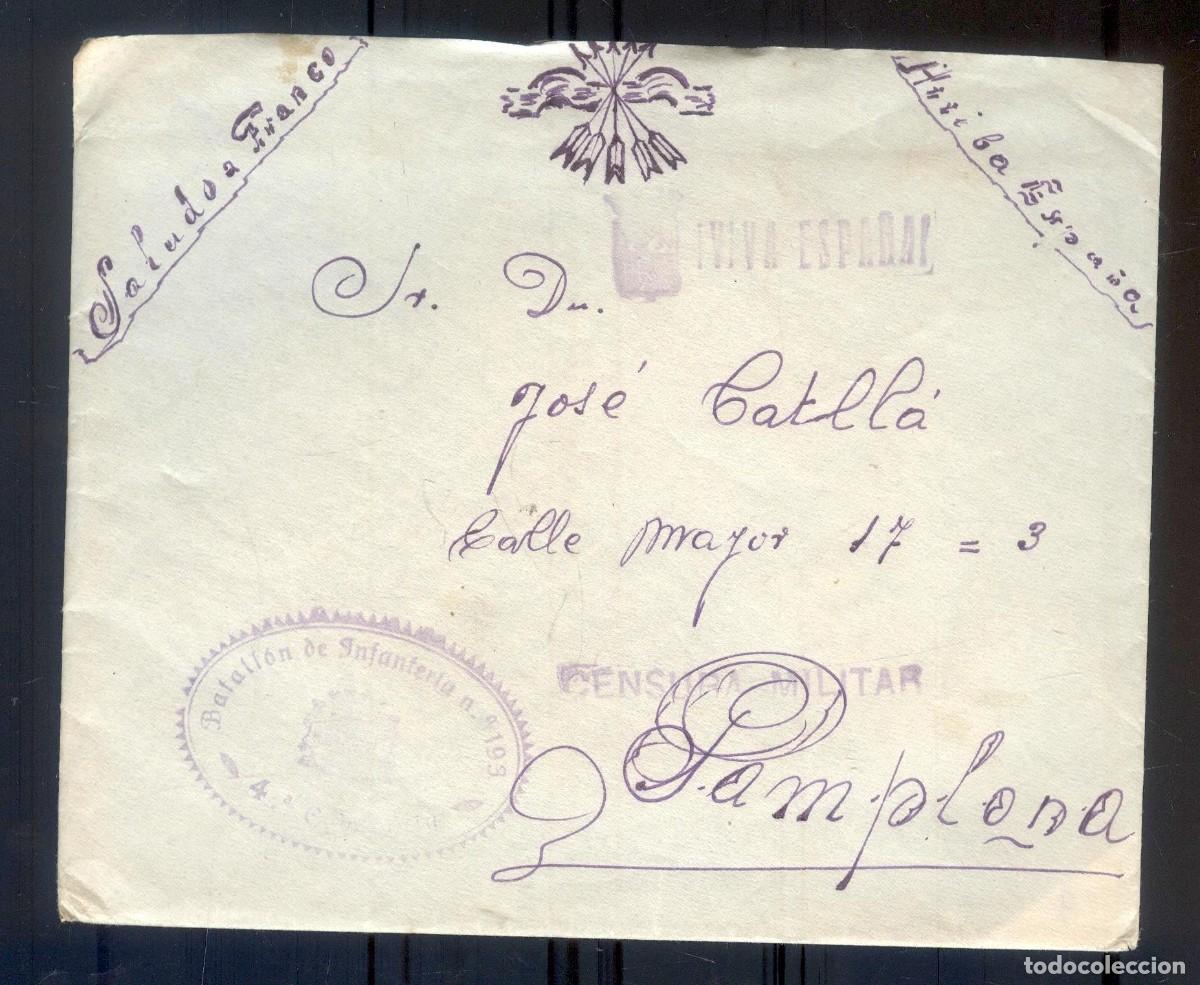 Saludo a Franco
Arriba España
¡VIVA ESPAÑA!
Sr. Dn.
José Catllá
Calle Mayor 17 = 3
CENSURA MILITAR
Pamplona
Batallón de Infantería n.º 193
4.ª Compañía
todocoleccion